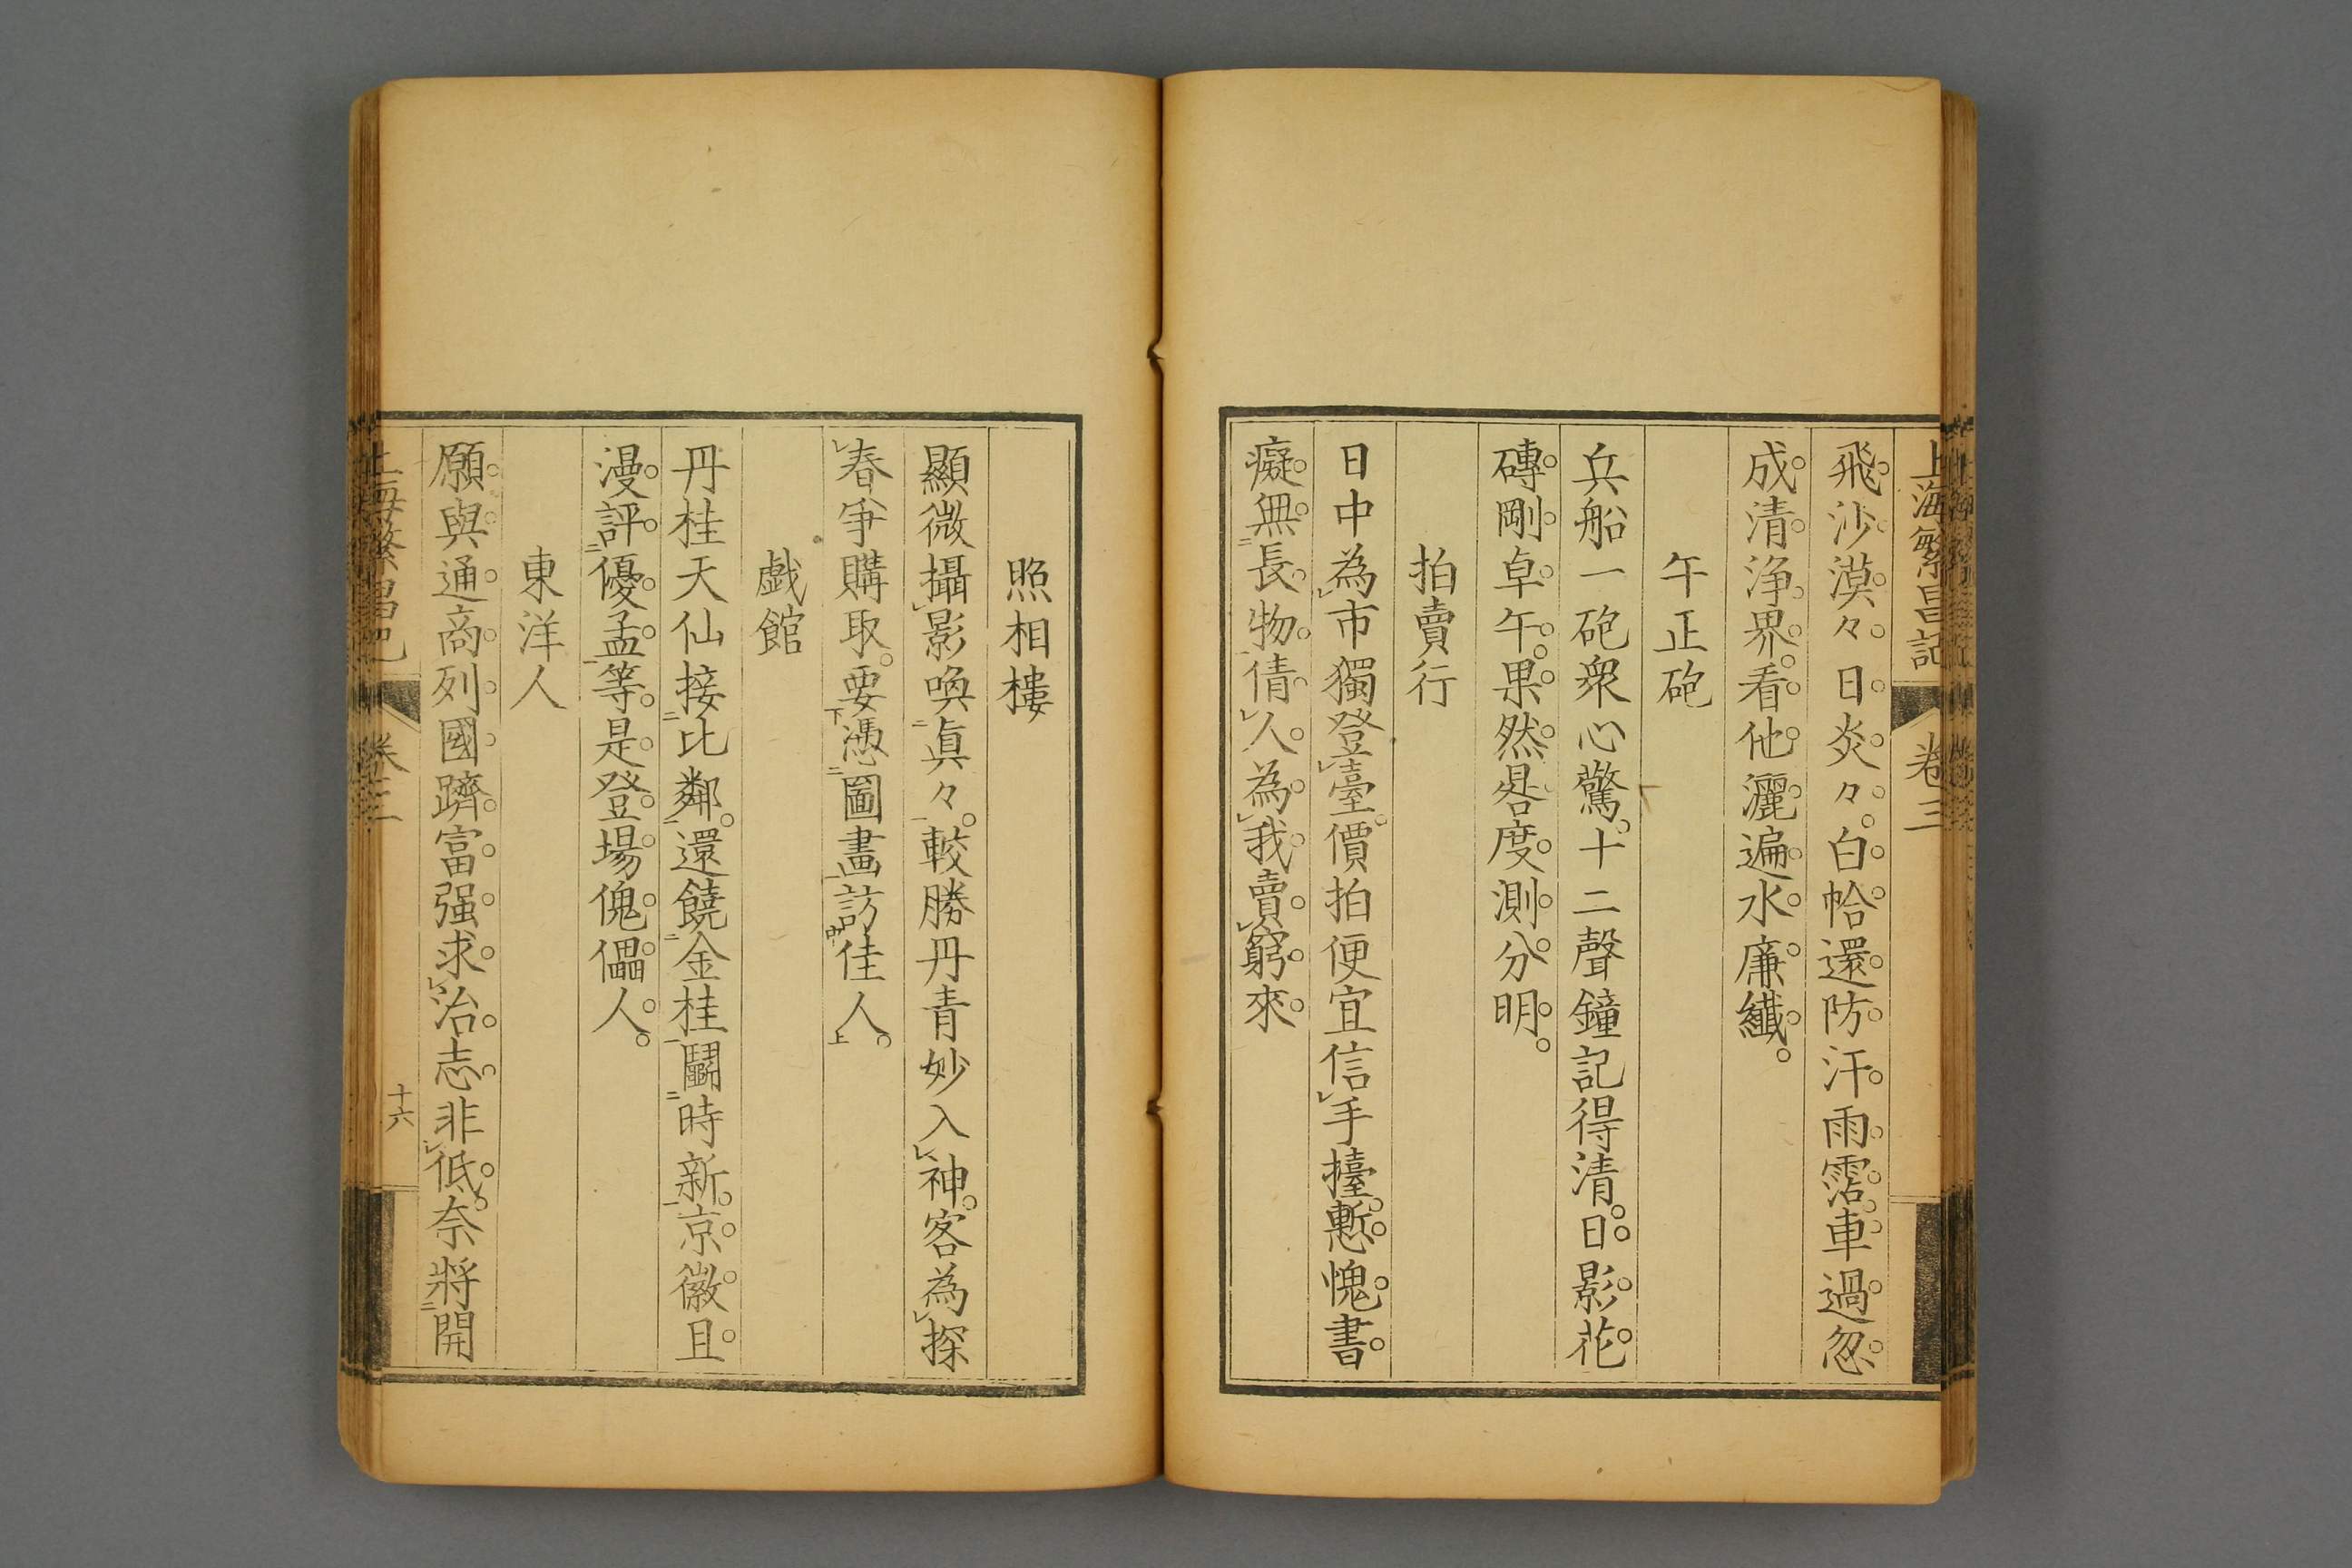 上海繁昌記 卷三
飛沙漠々日炎々。白帢還防汗雨霑。車過忽
成清浄界。看他灑遍水廉纖。
午正砲
兵船一砲衆心驚。十二聲鐘記得清。日影花
磚剛卓午。果然晷度測分明。
拍賣行
日中為市獨登臺。價拍便宜信手擡。慙愧書
癡無長物。倩人為我賣窮來
照相樓
顯微攝影喚眞々。較勝丹青妙入神。客為探
春爭購取。要憑圖畫訪佳人。
戯館
丹桂天仙接比鄰。還饒金桂鬭時新。京徽且
漫評優孟等。是登場傀儡人。
東洋人
願與通商列國躋富强求治志非低。奈將開
上海繁昌記 卷三 十六